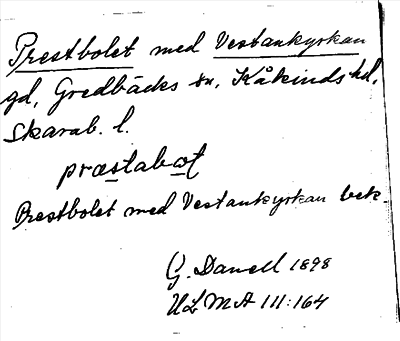 Prestbolet med Vestankyrkan
gd, Gredbäcks sn, Kåkinds hd,
Skarab. l.
præstabot
Prestbolet med Vestankyrkan bek.
G. Danell 1898
ULMA 111:164